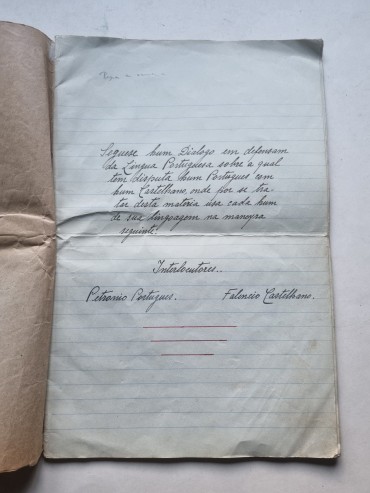 Seguese hum Dialogo em defensam
da Lingua Portuguesa sobre a qual
tem disputa hum Portugues com
hum Castelhano, onde por se tra-
tar desta materia usa cada hum
de sua lingoagem na maneyra
seguinte:
Interlocutores..
Petronio Portugues. Falencio Castelhano.